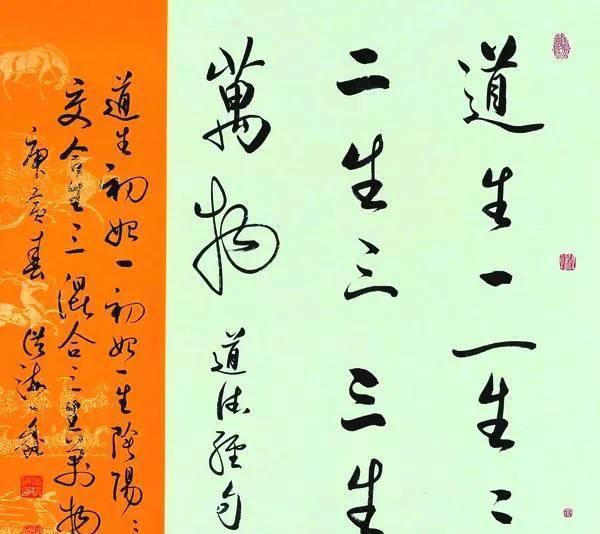 道生一一生二
二生三三生
萬物
道德經句
道生初始一初始一生陰陽二
交合生三混合三生萬物
庚寅春